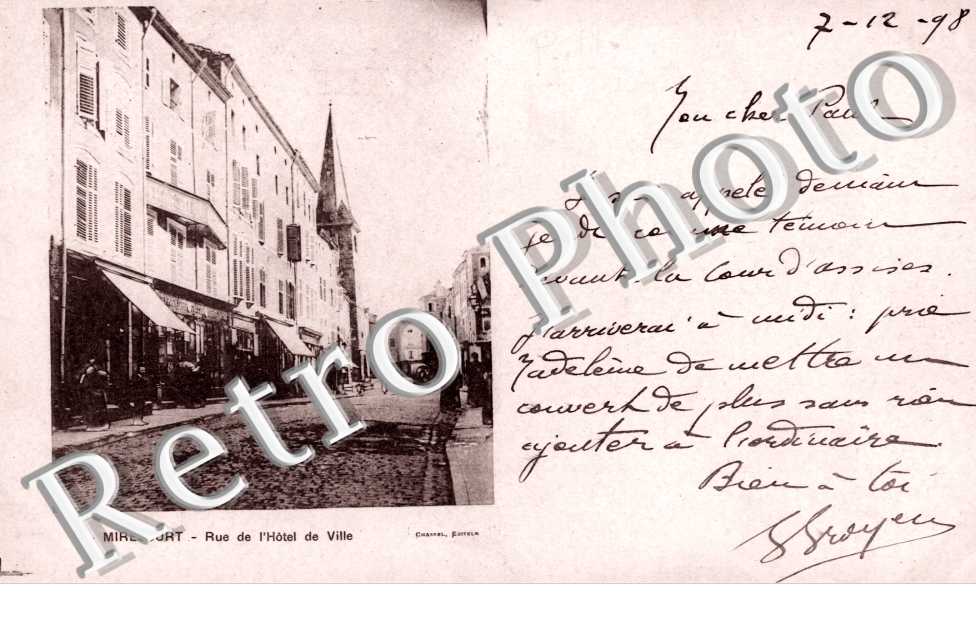 7-12-98
Mon cher Paul
appelé demain
comme témoin
devant la Cour d'assises.
J'arriverai à midi : prie
Madeleine de mettre un
couvert de plus sans rien
ajouter à l'ordinaire.
Bien à toi
MIRECOURT - Rue de l'Hôtel de Ville
CHASSEL, EDITEUR
Retro Photo